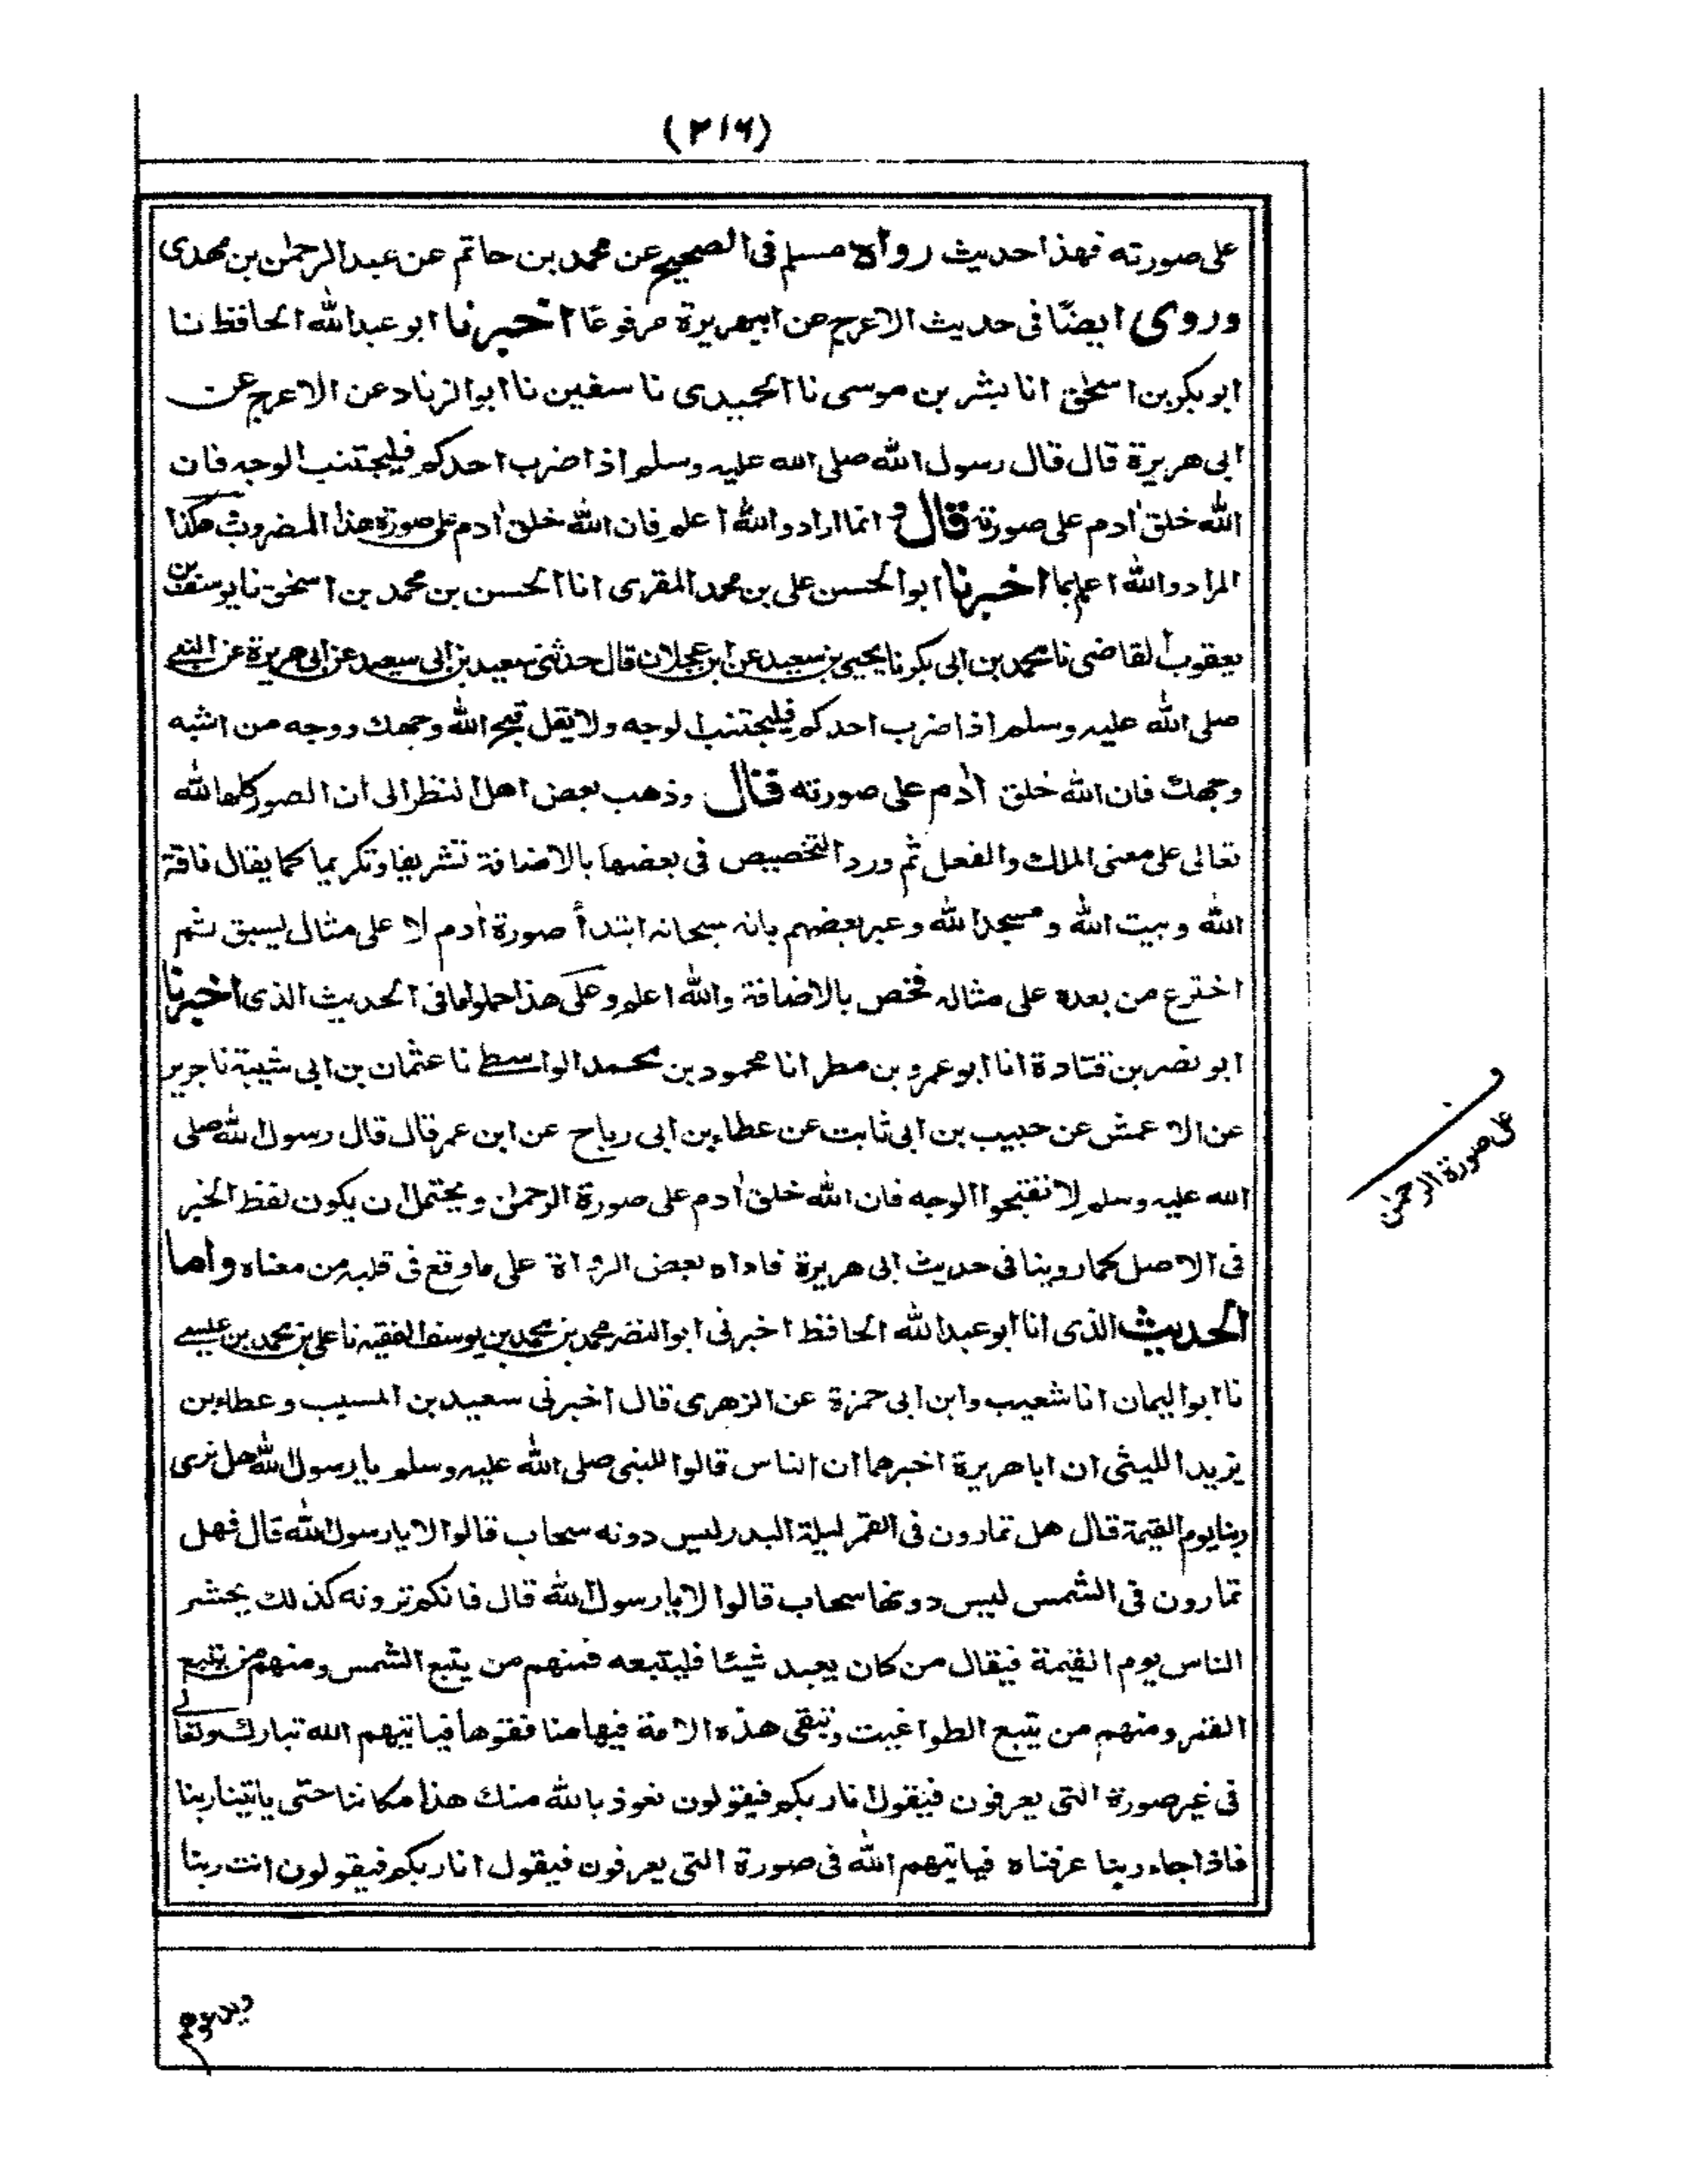 (٢١٦)
على صورته فهذا حديث رواه مسلم فى الصحيح عن محمد بن حاتم عن عبد الرحمٰن بن مهدى
وروى ايضًا فى حديث الاعرج عن ابيهريرة مرفوعًا اخبرنا ابو عبد الله الحافظ نا
ابو بكر بن اسحٰق انا بشر بن موسى نا الحميدى نا سفين نا ابو الزناد عن الاعرج عن
ابى هريرة قال قال رسول الله صلى الله عليه وسلم اذا ضرب احدكم فليجتنب الوجه فان
الله خلق اٰدم على صورته قال و انما اراد والله اعلم فان الله خلق اٰدم على صورة هذا المضروب هكذا
المراد والله اعلم بما اخبرنا ابو الحسن على بن محمد المقرى انا الحسن بن محمد بن اسحٰق نا يوسف بن
يعقوب القاضى نا محمد بن ابى بكر نا يحيى بن سعيد عن ابن عجلان قال حدثنى سعيد بن ابى سعيد عن ابى هريرة عن النبى
صلى الله عليه وسلم اذا ضرب احدكم فليجتنب الوجه ولا يقل قبح الله وجهك ووجه من اشبه
وجهك فان الله خلق اٰدم على صورته قال وذهب بعض اهل النظر الى ان الصور كلها لله
تعالى على معنى الملك والفعل ثم ورد التخصيص فى بعضها بالاضافة تشريفا وتكريما كما يقال ناقة
الله وبيت الله ومسجد الله وعبر بعضهم بانه سبحانه ابتدأ صورة اٰدم لا على مثال يسبق ثم
اخترع من بعده على مثاله فخص بالاضافة والله اعلم وعلى هذا حملوا ما فى الحديث الذى اخبرنا
ابو نصر بن قتادة انا ابو عمرو بن مطر انا محمود بن محمد الواسطى نا عثمان بن ابى شيبة نا جرير
عن الاعمش عن حبيب بن ابى ثابت عن عطاء بن ابى رباح عن ابن عمر قال قال رسول الله صلى
الله عليه وسلم لا تقبحوا الوجه فان الله خلق اٰدم على صورة الرحمٰن ويحتمل ان يكون لفظ الخبر
فى الاصل كما روينا فى حديث ابى هريرة فاداه بعض الرواة على ما وقع فى قلبه من معناه واما
الحديث الذى انا ابو عبد الله الحافظ اخبرنى ابو النضر محمد بن محمد بن يوسف الفقيه نا على بن محمد بن عيسى
نا ابو اليمان انا شعيب وابن ابى حمزة عن الزهرى قال اخبرنى سعيد بن المسيب وعطاء بن
يزيد الليثى ان ابا هريرة اخبرهما ان الناس قالوا للنبى صلى الله عليه وسلم يا رسول الله هل نرى
ربنا يوم القيمة قال هل تمارون فى القمر ليلة البدر ليس دونه سحاب قالوا لا يا رسول الله قال فهل
تمارون فى الشمس ليس دونها سحاب قالوا لا يا رسول الله قال فانكم ترونه كذلك يحشر
الناس يوم القيمة فيقال من كان يعبد شيئا فليتبعه فمنهم من يتبع الشمس ومنهم من يتبع
القمر ومنهم من يتبع الطواغيت وتبقى هذه الامة فيها منافقوها فياتيهم الله تبارك وتعالى
فى غير صورة التى يعرفون فيقول انا ربكم فيقولون نعوذ بالله منك هذا مكاننا حتى ياتينا ربنا
فاذا جاء ربنا عرفناه فياتيهم الله فى صورة التى يعرفون فيقول انا ربكم فيقولون انت ربنا
ف
على صورة الرحمٰن